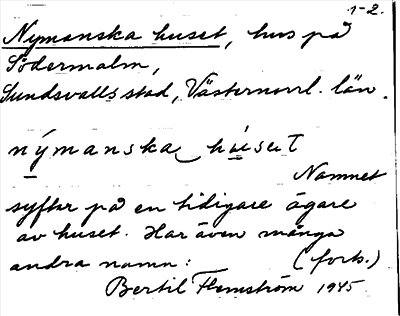 1-2.
Nymanska huset, hus på
Södermalm,
Sundsvalls stad, Västernorrl. län.
nýmanska húset
Namnet
syftar på en tidigare ägare
av huset. Har även många
andra namn: (forts.)
Bertil Flemström 1945